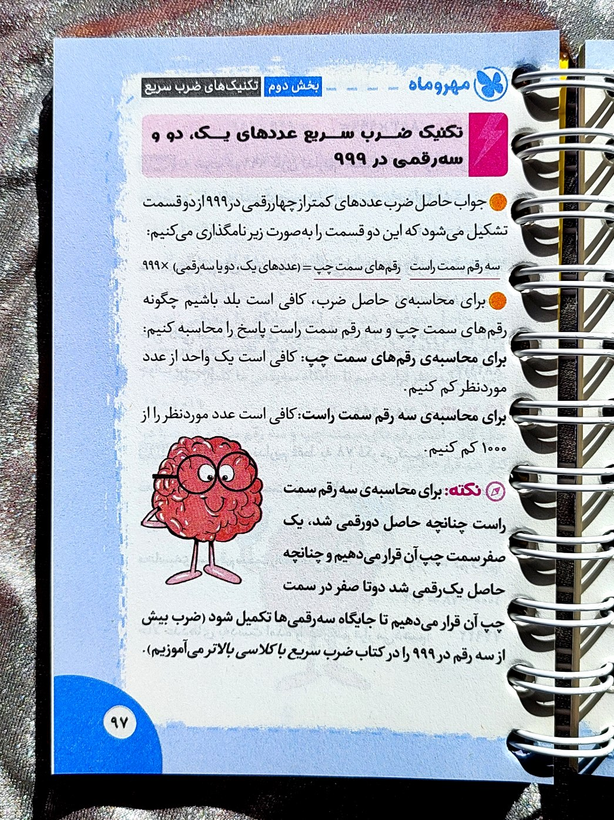 مهروماه
بخش دوم تکنیک‌های ضرب سریع
تکنیک ضرب سریع عددهای یک، دو و
سه‌رقمی در ۹۹۹
جواب حاصل ضرب عددهای کمتر از چهاررقمی در ۹۹۹ از دو قسمت
تشکیل می‌شود که این دو قسمت را به‌صورت زیر نام‌گذاری می‌کنیم:
سه رقم سمت راست رقم‌های سمت چپ = (عددهای یک، دو یا سه‌رقمی) × ۹۹۹
برای محاسبه‌ی حاصل ضرب، کافی است بلد باشیم چگونه
رقم‌های سمت چپ و سه رقم سمت راست پاسخ را محاسبه کنیم:
برای محاسبه‌ی رقم‌های سمت چپ: کافی است یک واحد از عدد
موردنظر کم کنیم.
برای محاسبه‌ی سه رقم سمت راست: کافی است عدد موردنظر را از
۱۰۰۰ کم کنیم.
نکته: برای محاسبه‌ی سه رقم سمت
راست چنانچه حاصل دورقمی شد، یک
صفر سمت چپ آن قرار می‌دهیم و چنانچه
حاصل یک‌رقمی شد دوتا صفر در سمت
چپ آن قرار می‌دهیم تا جایگاه سه‌رقمی‌ها تکمیل شود (ضرب بیش
از سه رقم در ۹۹۹ را در کتاب ضرب سریع با کلاسی بالاتر می‌آموزیم).
۹۷